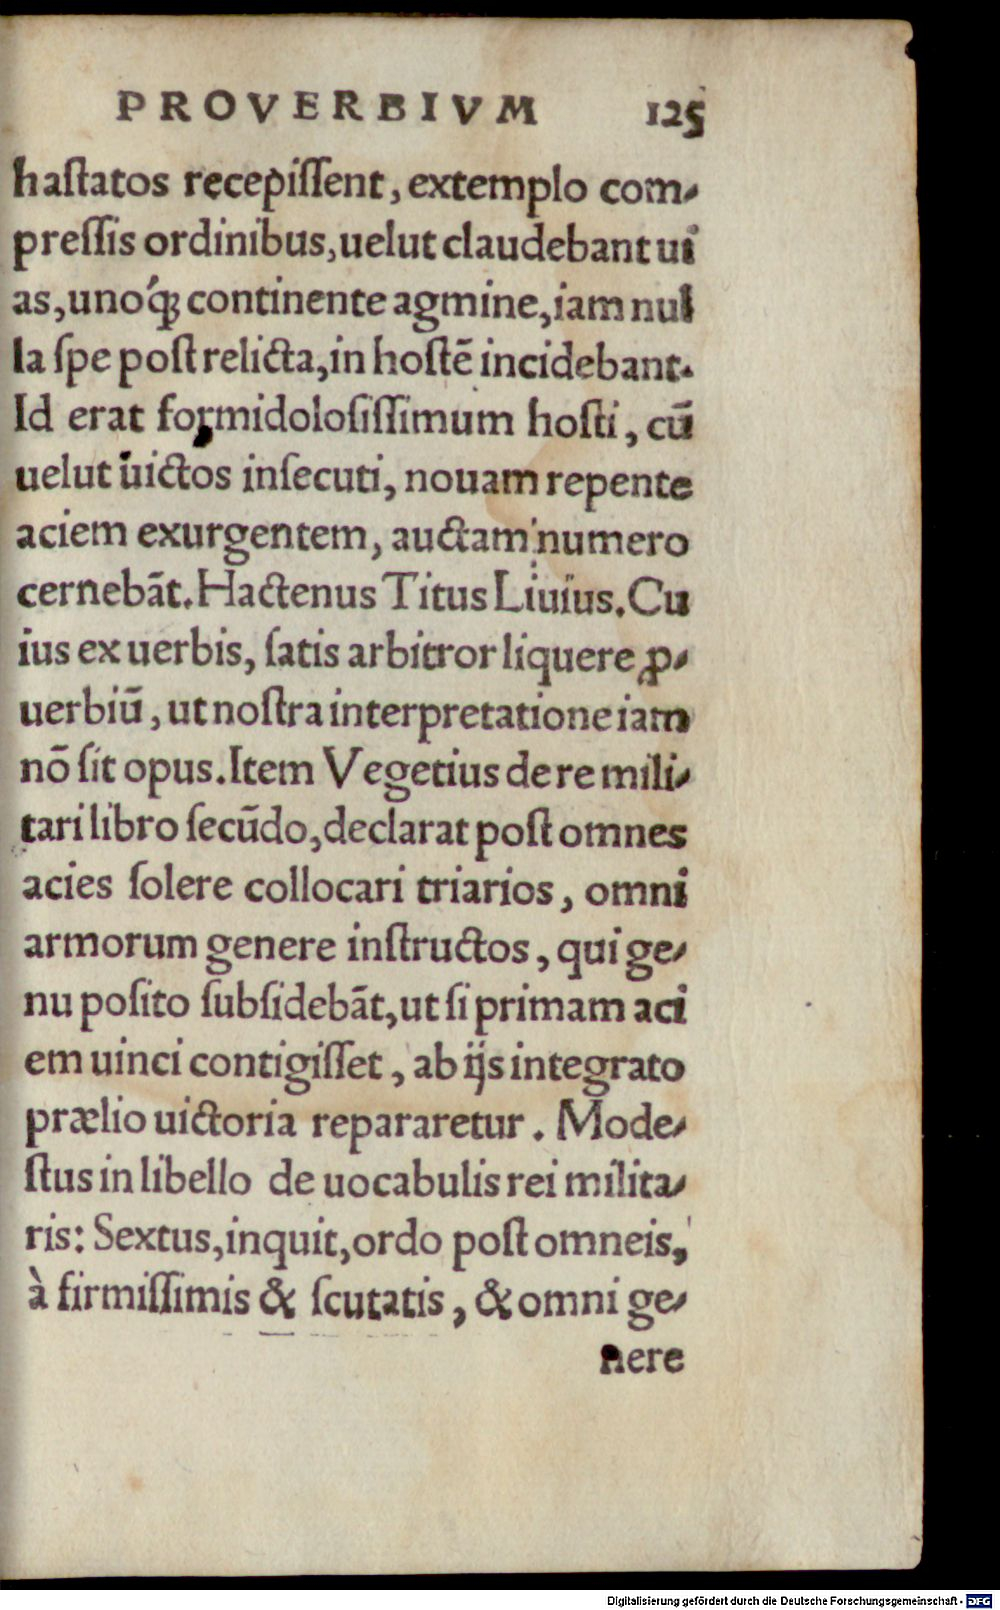 PROVERBIVM 125
haſtatos recepiſſent, extemplo com-
preſſis ordinibus, uelut claudebant ui
as, unoq́ꝫ continente agmine, iam nul
la ſpe poſt relicta, in hoſtē incidebant.
Id erat formidoloſiſſimum hoſti, cū
uelut uictos inſecuti, nouam repente
aciem exurgentem, auctam numero
cernebāt. Hactenus Titus Liuius. Cu
ius ex uerbis, ſatis arbitror liquere ꝓ-
uerbiū, ut noſtra interpretatione iam
nō ſit opus. Item Vegetius de re mili-
tari libro ſecūdo, declarat poſt omnes
acies ſolere collocari triarios, omni
armorum genere inſtructos, qui ge-
nu poſito ſubſidebāt, ut ſi primam aci
em uinci contigiſſet, ab ijs integrato
prælio uictoria repararetur. Mode-
ſtus in libello de uocabulis rei milita-
ris: Sextus, inquit, ordo poſt omneis,
à firmiſſimis & ſcutatis, & omni ge-
nere
Digitalisierung gefördert durch die Deutsche Forschungsgemeinschaft - DFG